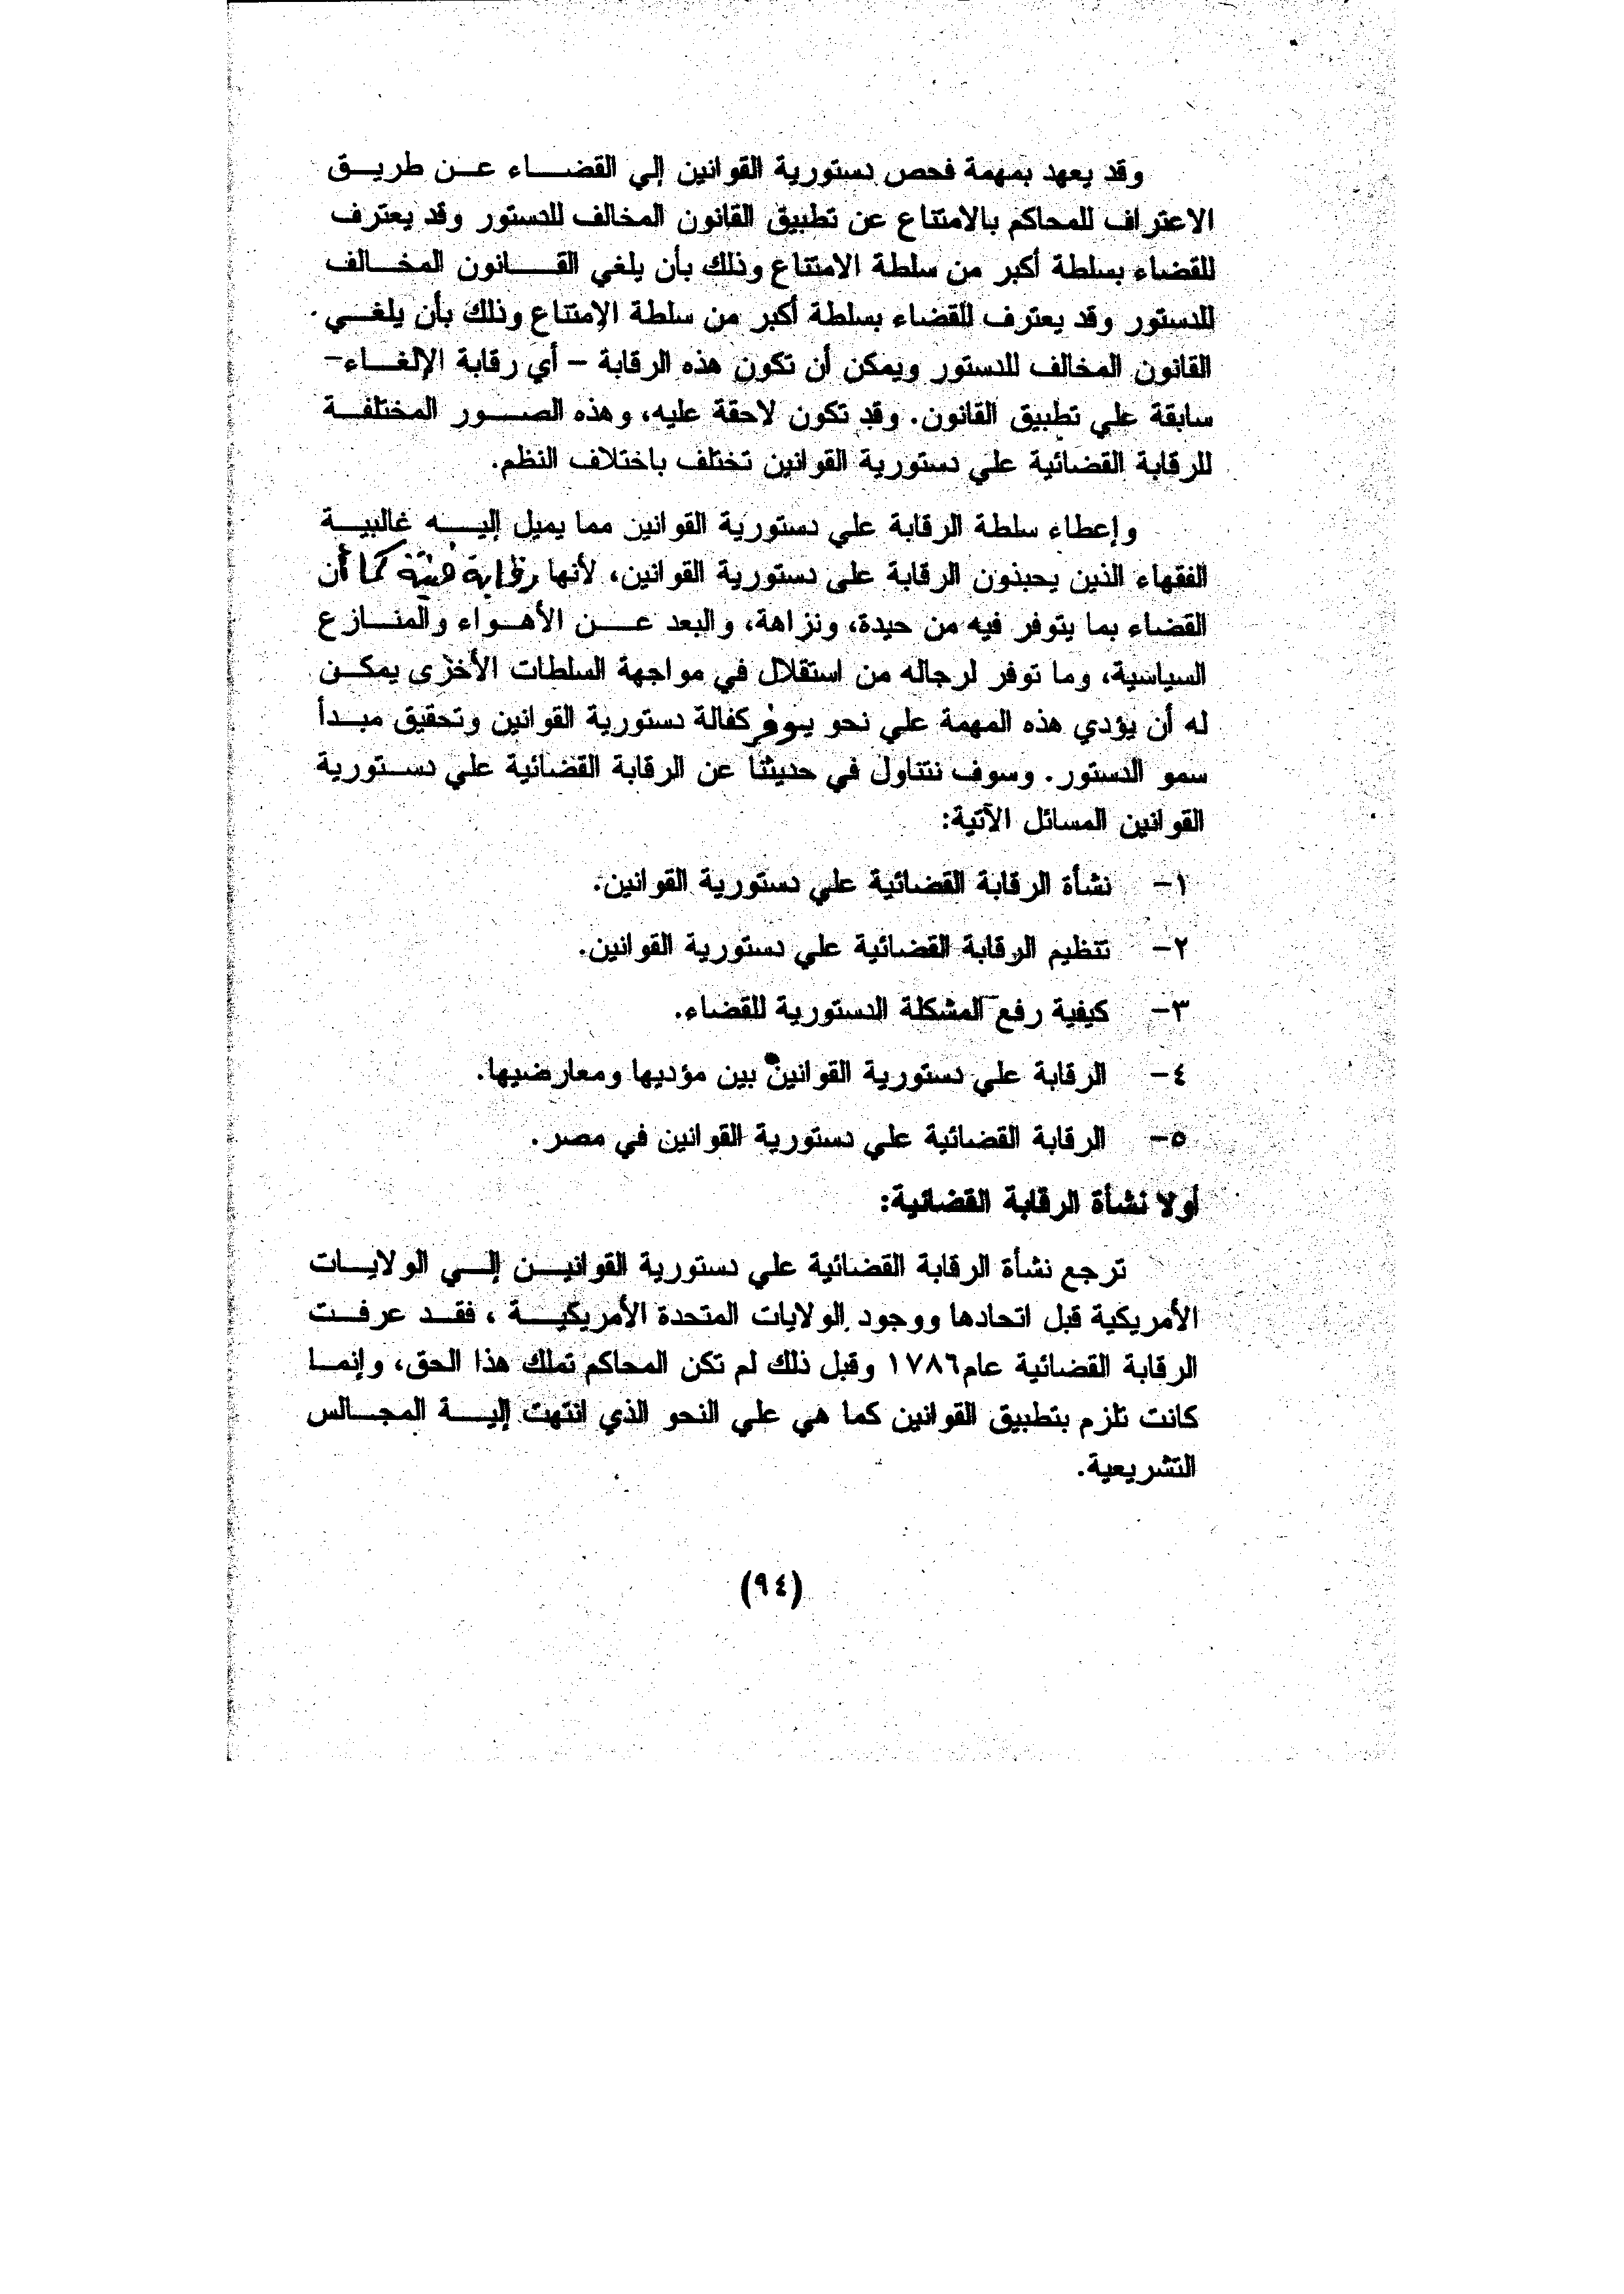 وقد يعهد بمهمة فحص دستورية القوانين إلي القضاء عن طريق
الاعتراف للمحاكم بالامتناع عن تطبيق القانون المخالف للدستور وقد يعترف
للقضاء بسلطة أكبر من سلطة الامتناع وذلك بأن يلغي القانون المخالف
للدستور وقد يعترف للقضاء بسلطة أكبر من سلطة الامتناع وذلك بأن يلغي
القانون المخالف للدستور ويمكن أن تكون هذه الرقابة – أي رقابة الإلغاء–
سابقة علي تطبيق القانون. وقد تكون لاحقة عليه، وهذه الصور المختلفة
للرقابة القضائية علي دستورية القوانين تختلف باختلاف النظم.
وإعطاء سلطة الرقابة علي دستورية القوانين مما يميل إليه غالبية
الفقهاء الذين يحبذون الرقابة على دستورية القوانين، لأنها رقابة فنية كما أن
القضاء بما يتوفر فيه من حيدة، ونزاهة، والبعد عن الأهواء والمنازع
السياسية، وما توفر لرجاله من استقلال في مواجهة السلطات الأخرى يمكن
له أن يؤدي هذه المهمة علي نحو يوفر كفالة دستورية القوانين وتحقيق مبدأ
سمو الدستور. وسوف نتناول في حديثنا عن الرقابة القضائية علي دستورية
القوانين المسائل الآتية:
١– نشأة الرقابة القضائية علي دستورية القوانين.
٢– تنظيم الرقابة القضائية علي دستورية القوانين.
٣– كيفية رفع المشكلة الدستورية للقضاء.
٤– الرقابة علي دستورية القوانين بين مؤديها ومعارضيها.
٥– الرقابة القضائية علي دستورية القوانين في مصر.
أولا نشأة الرقابة القضائية:
ترجع نشأة الرقابة القضائية علي دستورية القوانين إلي الولايات
الأمريكية قبل اتحادها ووجود الولايات المتحدة الأمريكية ، فقد عرفت
الرقابة القضائية عام١٧٨٦ وقبل ذلك لم تكن المحاكم تملك هذا الحق، وإنما
كانت تلزم بتطبيق القوانين كما هي علي النحو الذي انتهت إلية المجالس
التشريعية.
(٩٤)